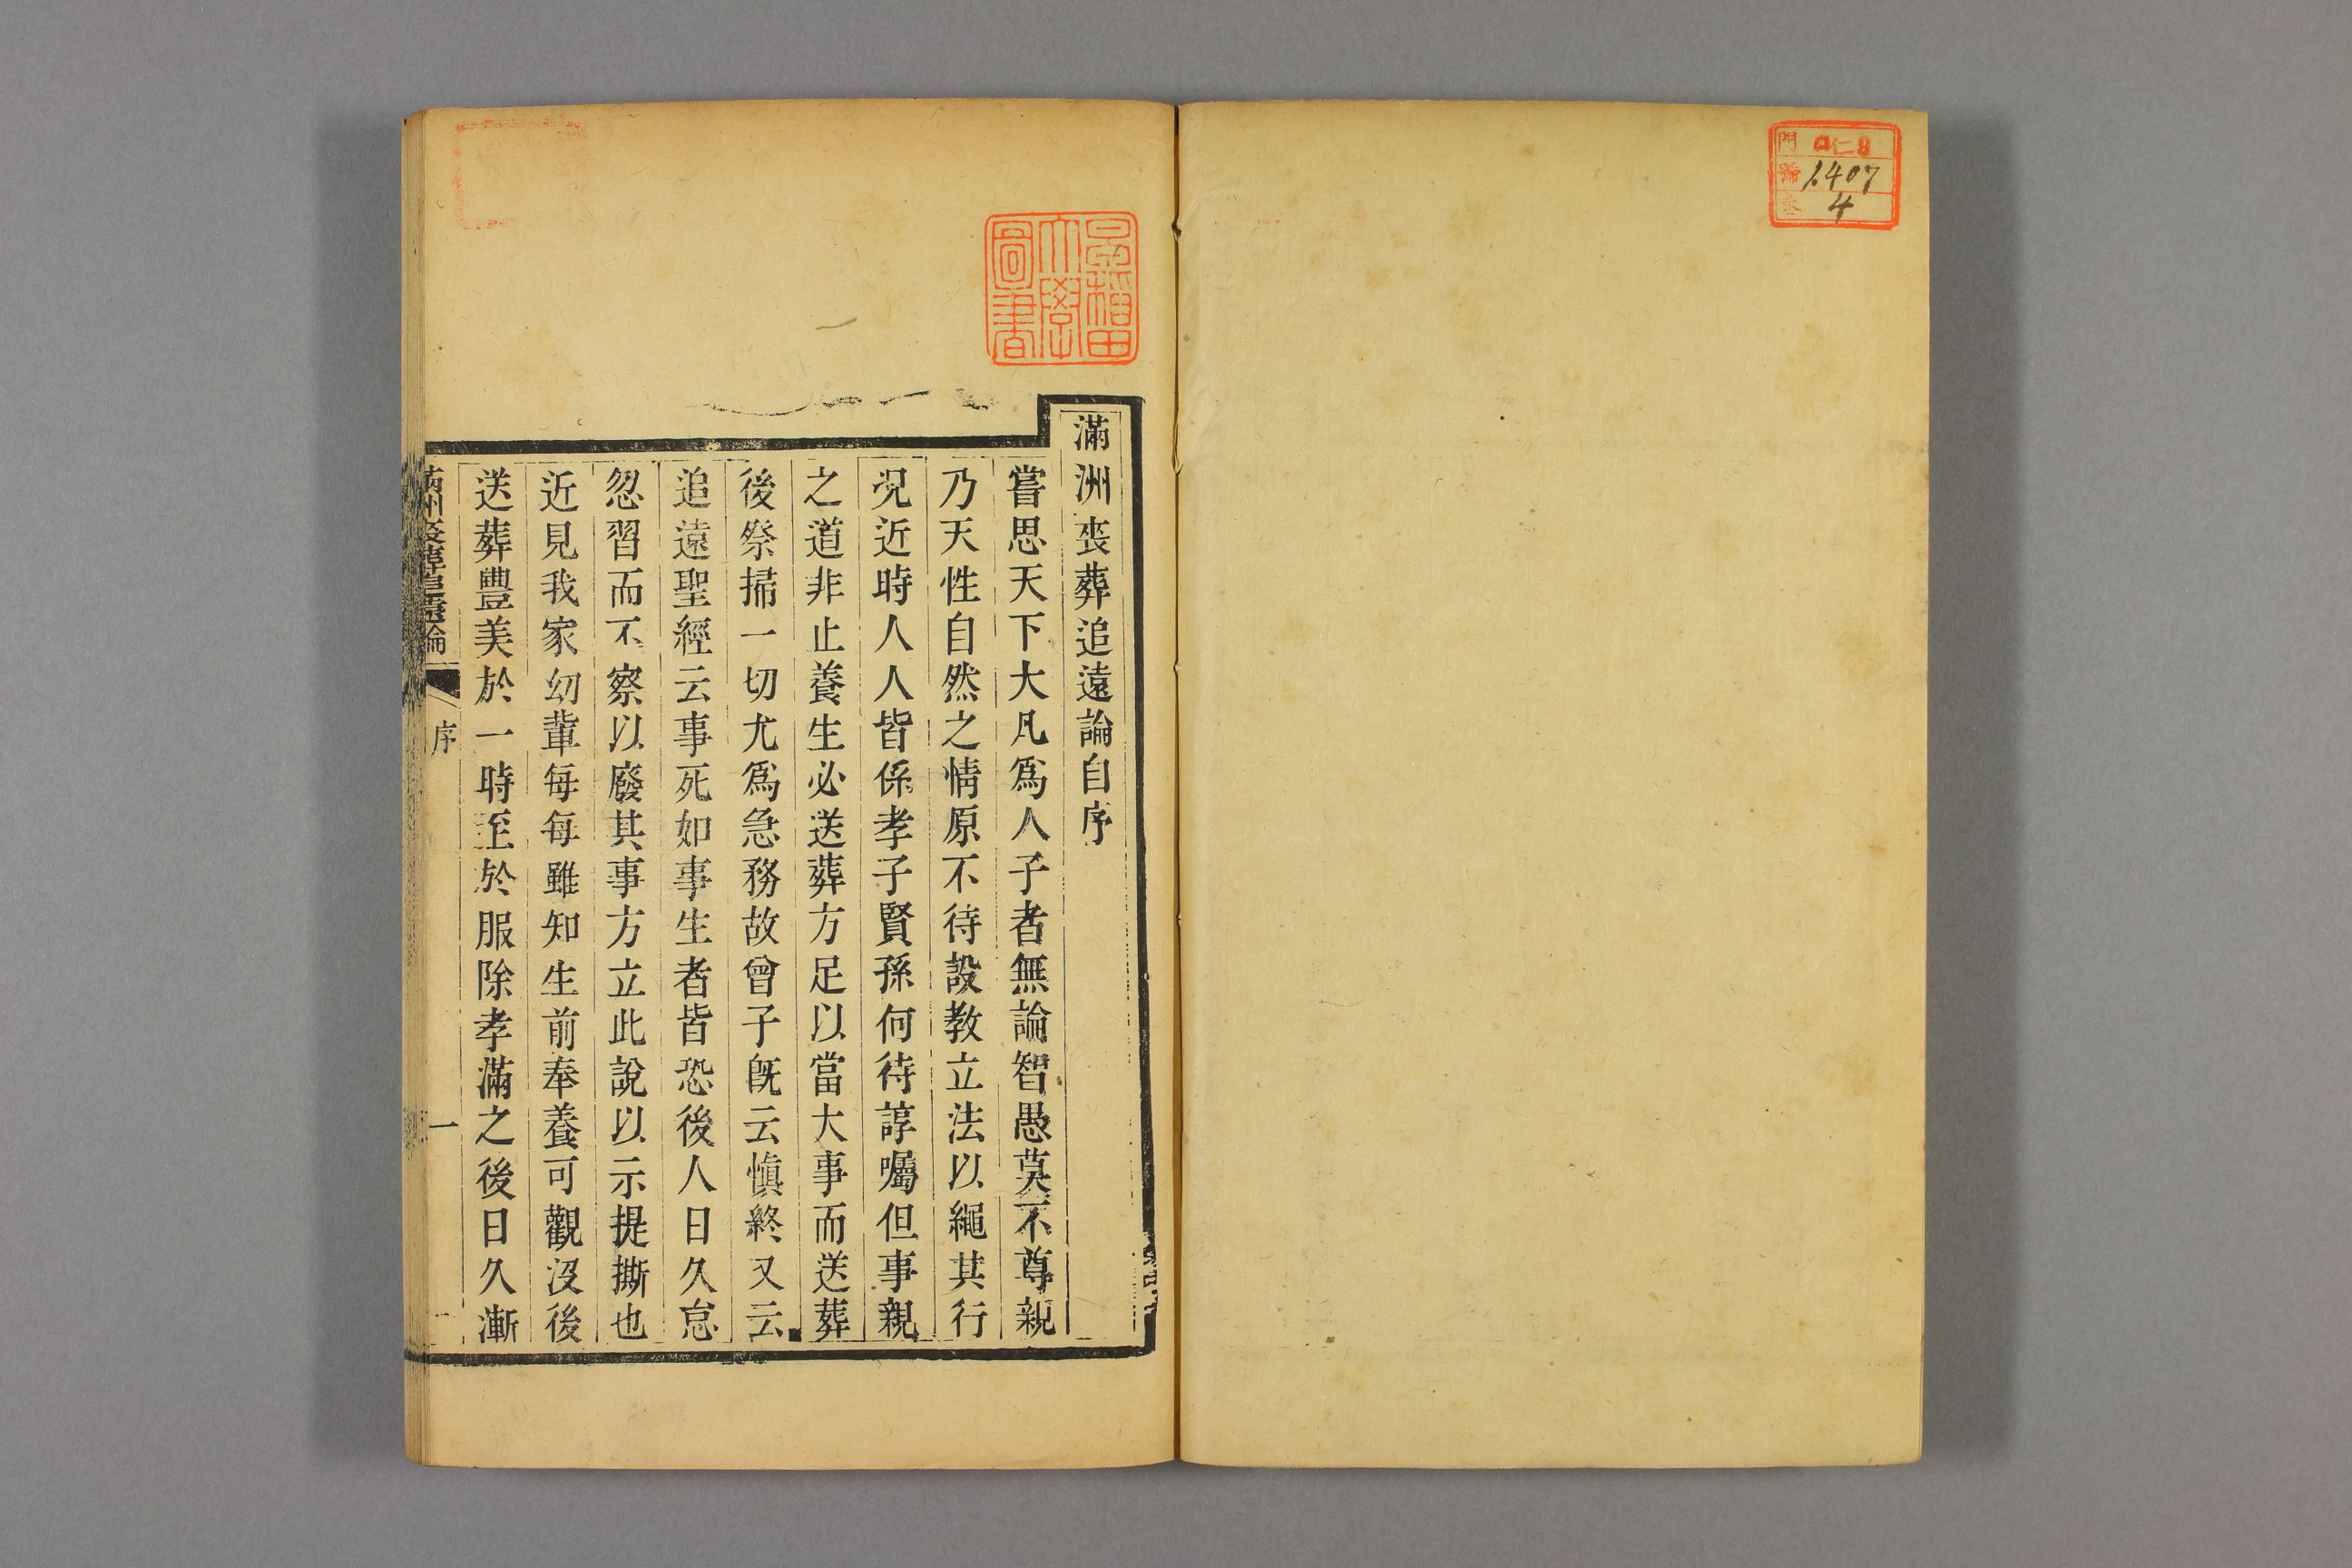 門 口仁8
號 1407
巻 4
早稲田
大學
圖書
滿洲喪葬追遠論自序
嘗思天下大凡爲人子者無論智愚莫不尊親
乃天性自然之情原不待設教立法以繩其行
况近時人人皆係孝子賢孫何待諄囑但事親
之道非止養生必送葬方足以當大事而送葬
後祭掃一切尤爲急務故曾子旣云愼終又云
追遠聖經云事死如事生者皆恐後人日久怠
忽習而不察以廢其事方立此說以示提撕也
近見我家幼輩每每雖知生前奉養可觀沒後
送葬豐美於一時至於服除孝滿之後日久漸
滿洲喪葬追遠論 序 一